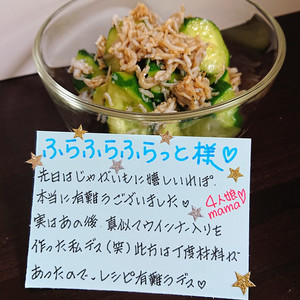 ふらふらふらっと様♡
先日はじゃがいもに嬉しいれぽ
本当に有難うございました♡
実はあの後、真似でウインナー入りを
作った私デス(笑)此方は丁度材料が
あったので、レシピ有難うデス♡
4人娘
mama